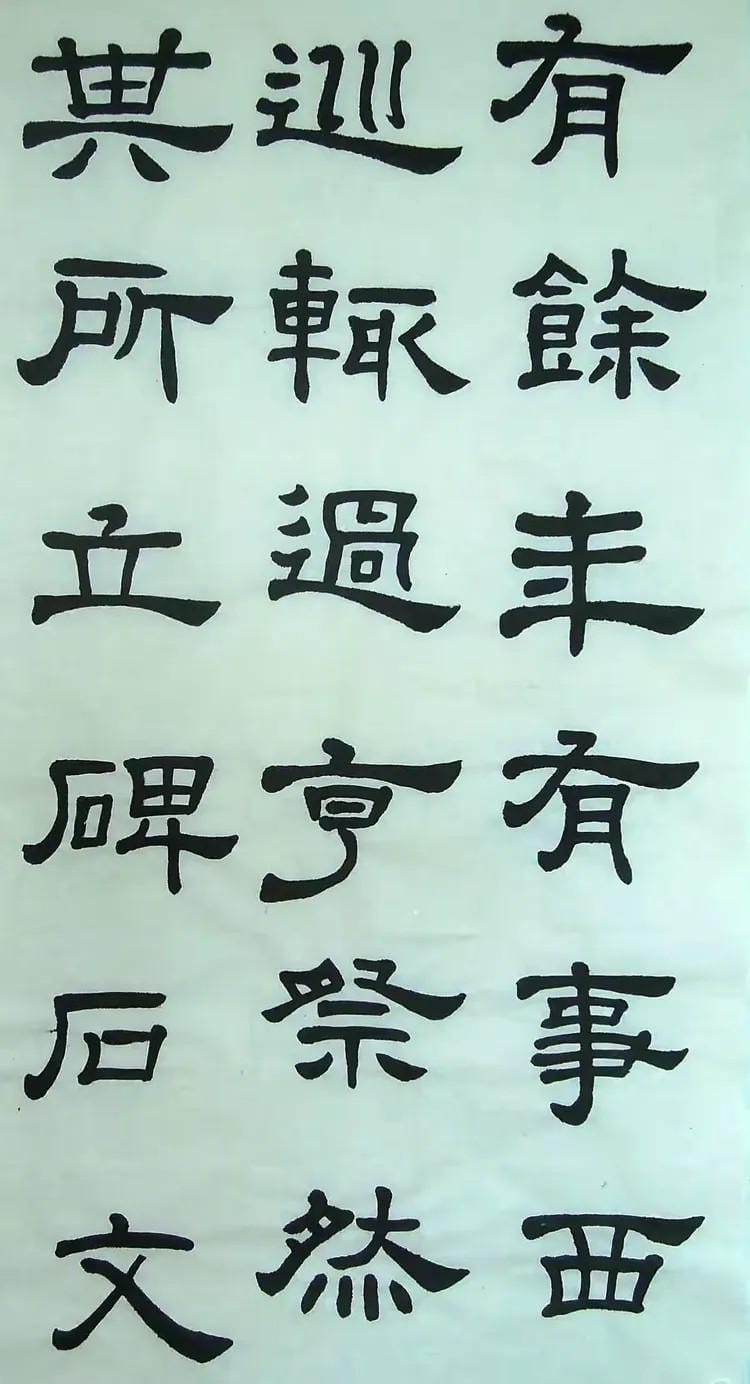 有餘年有事西
巡輒過亨祭然
其所立碑石文